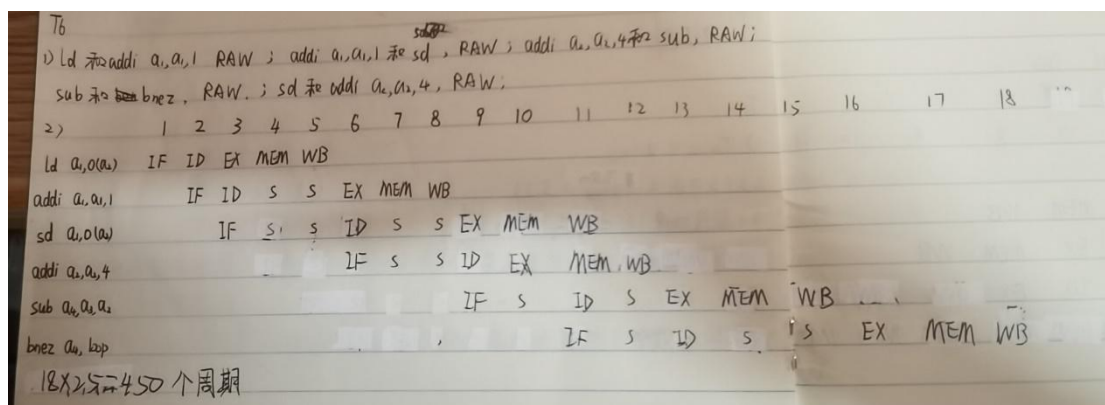 T6
1) Ld 和addi a₁,a₁,1 RAW ; addi a₁,a₁,1 和 sd , RAW ; addi a₂,a₂,4和 sub, RAW;
sub 和 bnez , RAW. ; sd 和 addi a₂,a₂,4 , RAW;
2) 1 2 3 4 5 6 7 8 9 10 11 12 13 14 15 16 17 18
ld a₁,0(a₂) IF ID EX MEM WB
addi a₁,a₁,1 IF ID S S EX MEM WB
sd a₁,0(a₂) IF S S ID S S EX MEM WB
addi a₂,a₂,4 IF S S ID EX MEM WB
sub a₄,a₃,a₂ IF S ID S EX MEM WB
bnez a₄, loop IF S ID S S EX MEM WB
18×25=450 个周期